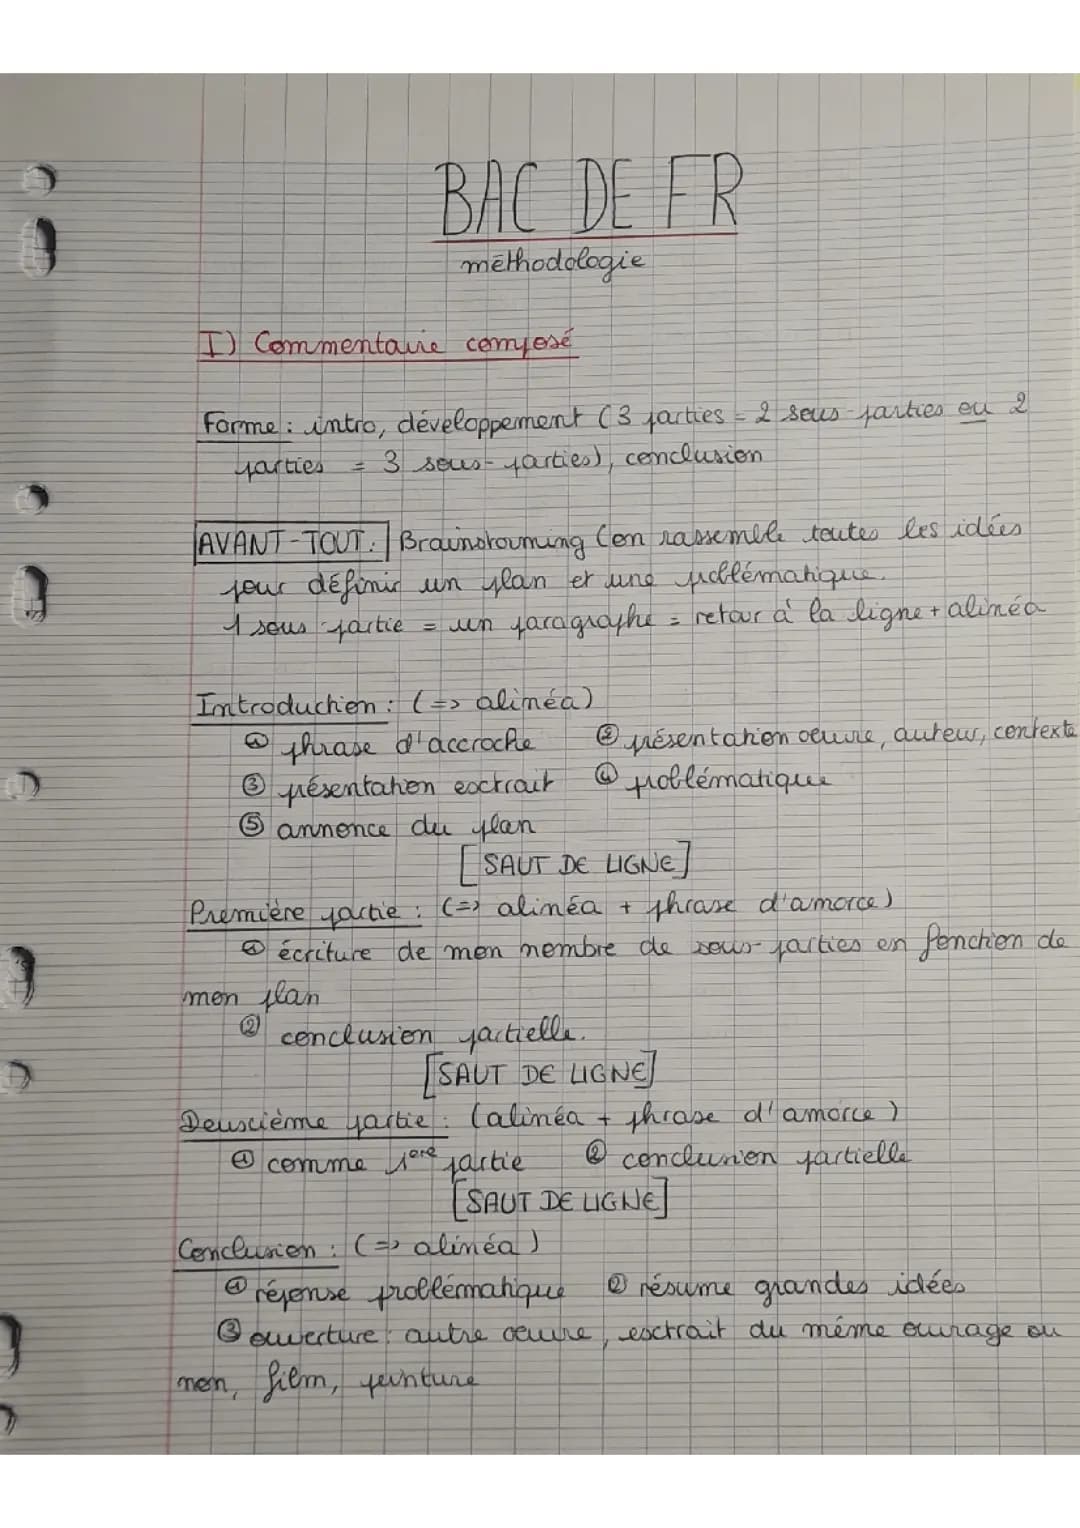 BAC DE FR
méthodologie
I) Commentaire composé
Forme : intro, développement (3 parties = 2 sous-parties ou 2
parties = 3 sous-parties), conclusion
AVANT-TOUT : Brainstorming (on rassemble toutes les idées
pour définir un plan et une problématique.
1 sous-partie = un paragraphe = retour à la ligne + alinéa
Introduction : (=> alinéa)
① phrase d'accroche ② présentation oeuvre, auteur, contexte
③ présentation extrait ④ problématique
⑤ annonce du plan
[SAUT DE LIGNE]
Première partie : (=> alinéa + phrase d'amorce)
① écriture de mon nombre de sous-parties en fonction de
mon plan
② conclusion partielle.
[SAUT DE LIGNE]
Deuxième partie : (alinéa + phrase d'amorce)
① comme 1ère partie ② conclusion partielle
[SAUT DE LIGNE]
Conclusion : (=> alinéa)
① réponse problématique ② résume grandes idées
③ ouverture : autre oeuvre, extrait du même ouvrage ou
non, film, peinture